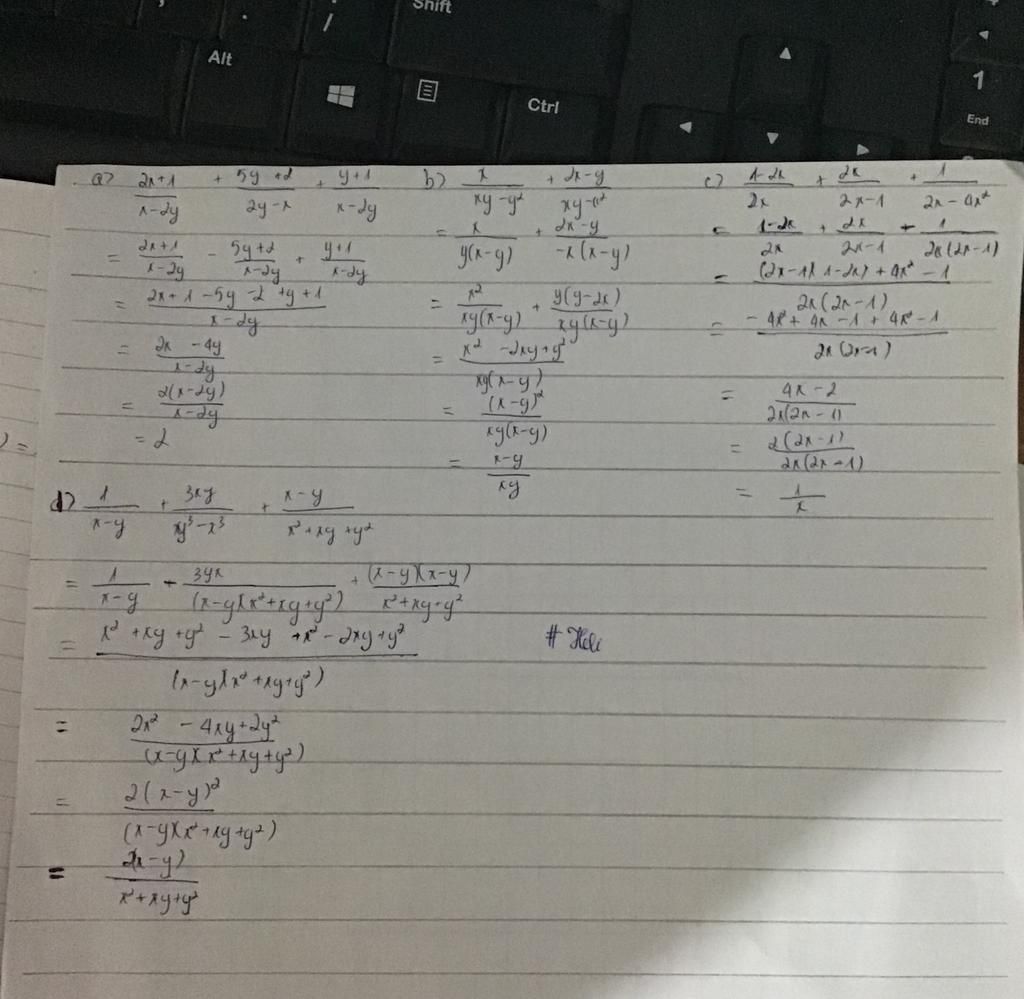 Shift
Alt
/
Ctrl
1
End
a) (2x+1)/(x-2y) + (5y+2)/(2y-x) + (y+1)/(x-2y)
= (2x+1)/(x-2y) - (5y+2)/(x-2y) + (y+1)/(x-2y)
= (2x+1-5y-2+y+1)/(x-2y)
= (2x-4y)/(x-2y)
= 2(x-2y)/(x-2y)
= 2
b) x/(xy-y²) + (2x-y)/(xy-x²)
= x/(y(x-y)) + (2x-y)/(-x(x-y))
= x²/(xy(x-y)) + y(y-2x)/(xy(x-y))
= (x²-2xy+y²)/(xy(x-y))
= (x-y)²/(xy(x-y))
= (x-y)/(xy)
c) (1-2x)/(2x) + 2x/(2x-1) + 1/(2x-4x²)
= (1-2x)/(2x) + 2x/(2x-1) + 1/(2x(2x-1))
= ((2x-1)(1-2x)+4x²-1)/(2x(2x-1))
= (-4x²+4x-1+4x²-1)/(2x(2x-1))
= (4x-2)/(2x(2x-1))
= 2(2x-1)/(2x(2x-1))
= 1/x
d) 1/(x-y) + 3xy/(y³-x³) + (x-y)/(x²+xy+y²)
= 1/(x-y) - 3yx/((x-y)(x²+xy+y²)) + (x-y)(x-y)/(x²+xy+y²)
= (x²+xy+y²-3xy+x²-2xy+y²)/((x-y)(x²+xy+y²))
= (2x²-4xy+2y²)/((x-y)(x²+xy+y²))
= 2(x-y)²/((x-y)(x²+xy+y²))
= 2(x-y)/(x²+xy+y²)